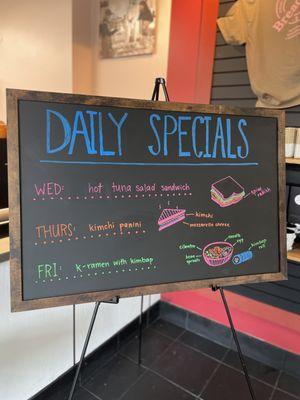 DAILY SPECIALS
WED: hot tuna salad sandwich
spicy radish
THURS: kimchi panini
kimchi
mozzarella cheese
FRI: k-ramen with kimbap
cilantro
bean sprouts
egg
kimbap roll